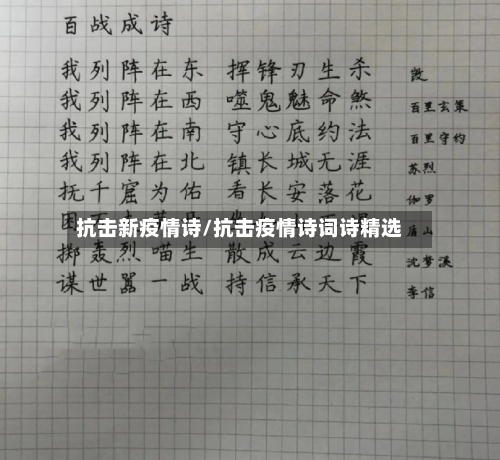 百战成诗
我列阵在东 挥锋刃生杀 敳
我列阵在西 噬鬼魅命煞 百里玄策
我列阵在南 守心底约法 百里守约
我列阵在北 镇长城无涯 苏烈
抚千窟为佑 看长安落花 伽罗
抗击新疫情诗/抗击疫情诗词诗精选
盾山
掷轰烈喵生 散成云边霞 沈梦溪
谋世嚣一战 持信承天下 李信